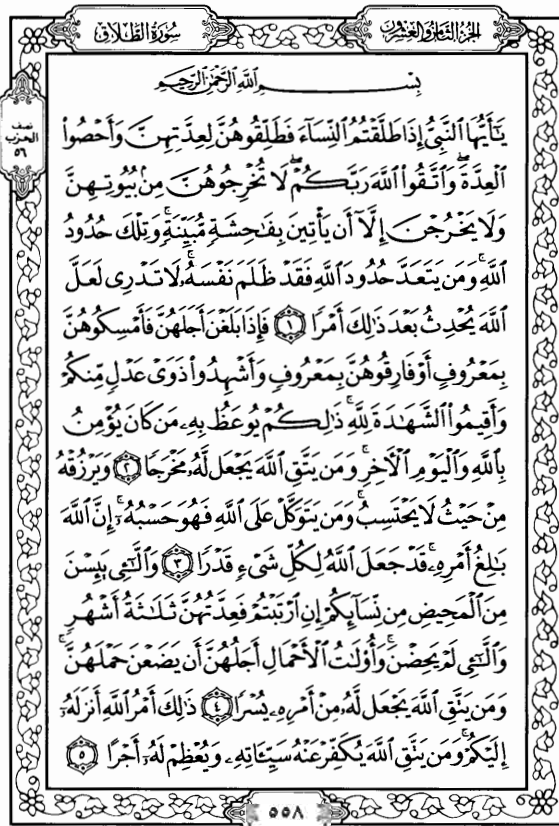 الجزء الثامن والعشرون
سورة الطلاق
نصف
الحزب
٥٦
بِسْمِ ٱللَّهِ ٱلرَّحْمَٰنِ ٱلرَّحِيمِ
يَٰٓأَيُّهَا ٱلنَّبِيُّ إِذَا طَلَّقْتُمُ ٱلنِّسَآءَ فَطَلِّقُوهُنَّ لِعِدَّتِهِنَّ وَأَحْصُوا۟
ٱلْعِدَّةَ ۖ وَٱتَّقُوا۟ ٱللَّهَ رَبَّكُمْ ۖ لَا تُخْرِجُوهُنَّ مِنۢ بُيُوتِهِنَّ
وَلَا يَخْرُجْنَ إِلَّآ أَن يَأْتِينَ بِفَٰحِشَةٍ مُّبَيِّنَةٍ ۚ وَتِلْكَ حُدُودُ
ٱللَّهِ ۚ وَمَن يَتَعَدَّ حُدُودَ ٱللَّهِ فَقَدْ ظَلَمَ نَفْسَهُۥ ۚ لَا تَدْرِى لَعَلَّ
ٱللَّهَ يُحْدِثُ بَعْدَ ذَٰلِكَ أَمْرًا ١ فَإِذَا بَلَغْنَ أَجَلَهُنَّ فَأَمْسِكُوهُنَّ
بِمَعْرُوفٍ أَوْ فَارِقُوهُنَّ بِمَعْرُوفٍ وَأَشْهِدُوا۟ ذَوَىْ عَدْلٍ مِّنكُمْ
وَأَقِيمُوا۟ ٱلشَّهَٰدَةَ لِلَّهِ ۚ ذَٰلِكُمْ يُوعَظُ بِهِۦ مَن كَانَ يُؤْمِنُ
بِٱللَّهِ وَٱلْيَوْمِ ٱلْءَاخِرِ ۚ وَمَن يَتَّقِ ٱللَّهَ يَجْعَل لَّهُۥ مَخْرَجًا ٢ وَيَرْزُقْهُ
مِنْ حَيْثُ لَا يَحْتَسِبُ ۚ وَمَن يَتَوَكَّلْ عَلَى ٱللَّهِ فَهُوَ حَسْبُهُۥٓ ۚ إِنَّ ٱللَّهَ
بَٰلِغُ أَمْرِهِۦ ۚ قَدْ جَعَلَ ٱللَّهُ لِكُلِّ شَىْءٍ قَدْرًا ٣ وَٱلَّٰٓـِٔى يَئِسْنَ
مِنَ ٱلْمَحِيضِ مِن نِّسَآئِكُمْ إِنِ ٱرْتَبْتُمْ فَعِدَّتُهُنَّ ثَلَٰثَةُ أَشْهُرٍ
وَٱلَّٰٓـِٔى لَمْ يَحِضْنَ ۚ وَأُو۟لَٰتُ ٱلْأَحْمَالِ أَجَلُهُنَّ أَن يَضَعْنَ حَمْلَهُنَّ ۚ
وَمَن يَتَّقِ ٱللَّهَ يَجْعَل لَّهُۥ مِنْ أَمْرِهِۦ يُسْرًا ٤ ذَٰلِكَ أَمْرُ ٱللَّهِ أَنزَلَهُۥٓ
إِلَيْكُمْ ۚ وَمَن يَتَّقِ ٱللَّهَ يُكَفِّرْ عَنْهُ سَيِّـَٔاتِهِۦ وَيُعْظِمْ لَهُۥٓ أَجْرًا ٥
٥٥٨